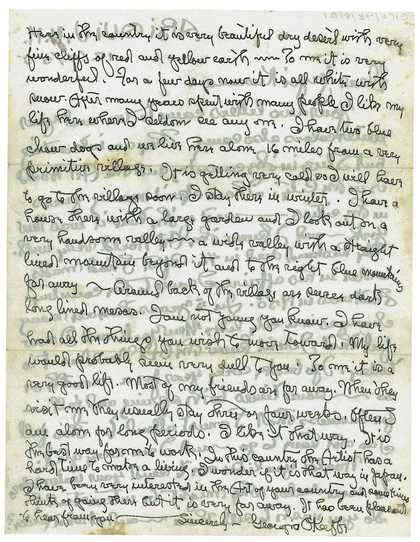 Here in this country it is very beautiful dry desert with very
fine cliffs of red and yellow earth — To me it is very
wonderful. For a few days now it is all white with
snow. After many years spent with many people I like my
life here where I seldom see any one. I have two blue
chow dogs and we live here alone 16 miles from a very
primitive village. It is getting very cold so I will have
to go to the village soon. I stay there in winter. I have a
house there with a large garden and I look out on a
very handsome valley — a wide valley with a straight
lined mountain beyond it and to the right blue mountains
far away — Around back of the village are seven dark
long lined mesas. I am not young you know. I have
had all the things you wish to move toward. My life
would probably seem very dull to you. To me it is a
very good life. Most of my friends are far away. When they
visit me they usually stay three or four weeks. Often I
am alone for long periods. I like it that way. It is
the best way for me to work. In this country the Artist has a
hard time to make a living. I wonder if it is that way in Japan.
I have been very interested in the Art of your country and sometimes
think of going there but it is very far away. It has been pleasant
to hear from you —
Sincerely — Georgia O'Keeffe